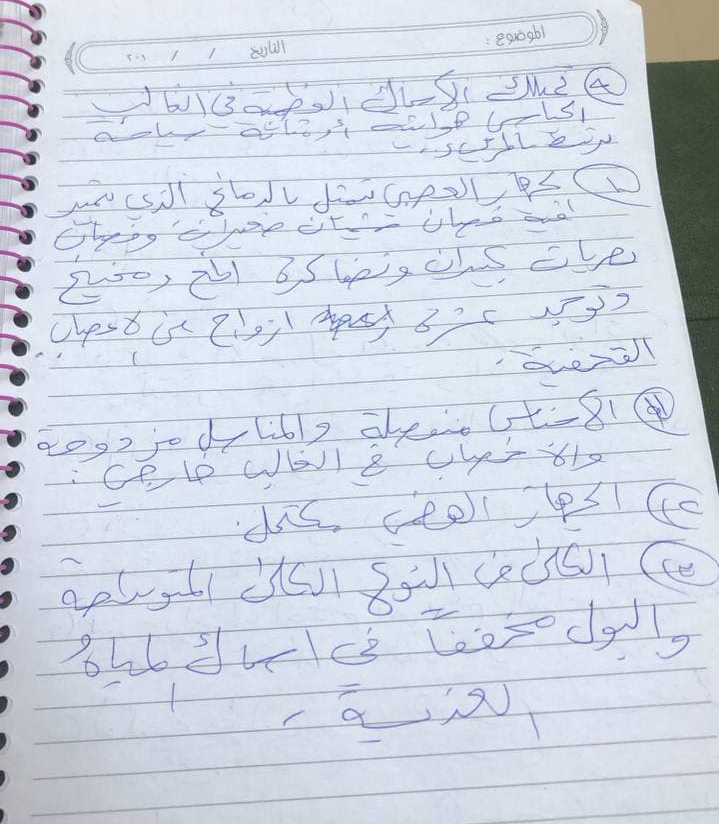 الموضوع : التاريخ / / ٢٠٠
٩ تمتلك الأسماك العظمية في الغالب
مثانة سباحة
ترتبط بالمريء
١٠ الجهاز العصبي تتمثل بالدماغ الذي يتميز
فيه فصان صغيران وفصان
بصريان كبيران ونصفا كرة المخ ومخيخ
وتوجد عشرة ازواج من الاعصاب
القحفية .
١١ الأجناس منفصلة والمناسل مزدوجة
والاخصاب في الغالب خارجي .
١٢ الجهاز الهضمي مكتمل
١٣ الكلى من النوع الكلى المتوسطة
والبول مخففاً في اسماك المياه
العذبة .